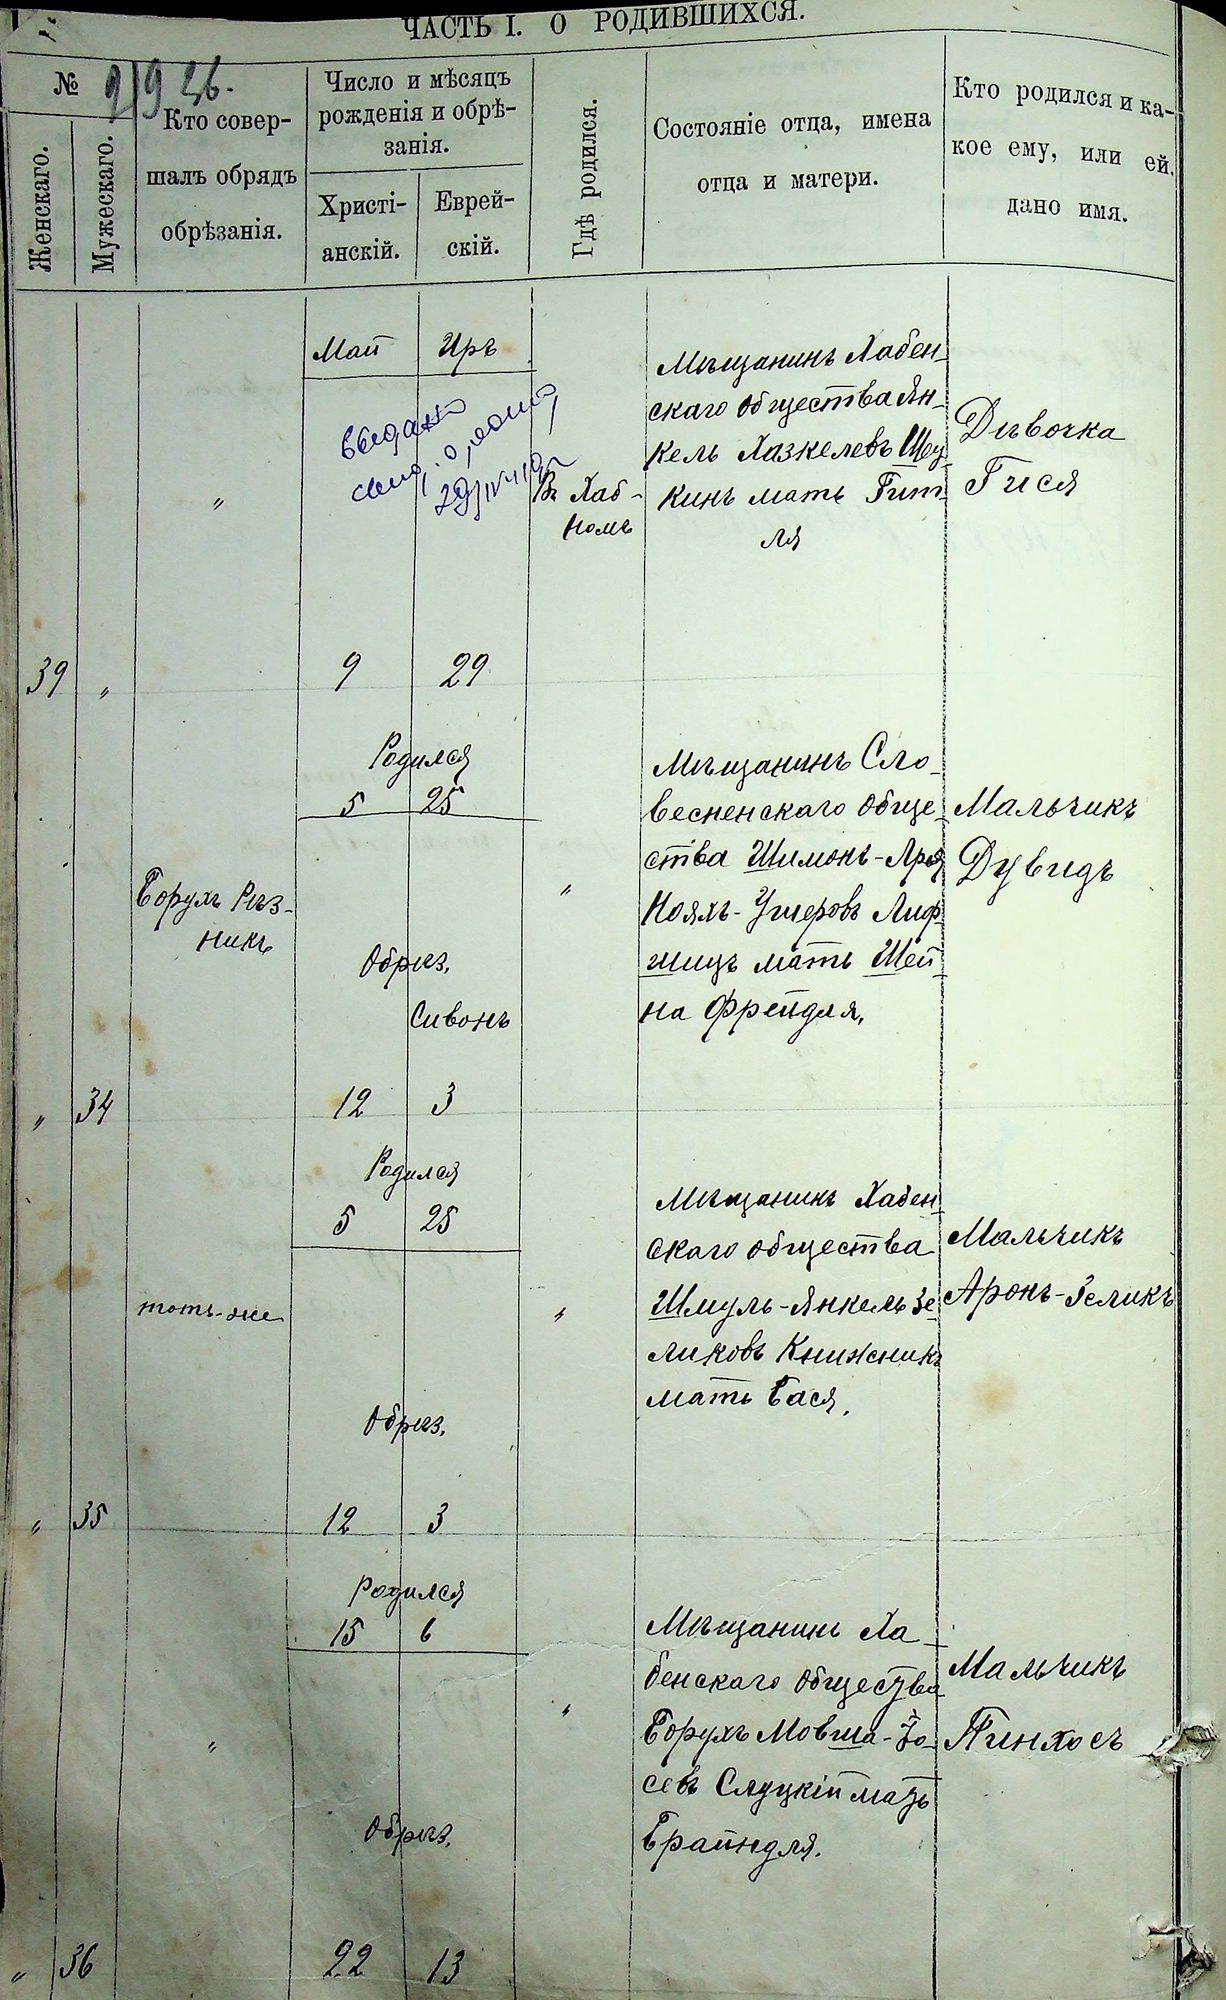 ЧАСТЬ I. О РОДИВШИХСЯ.
№
Женскаго.
Мужескаго.
Кто совер-
шалъ обрядъ
обрѣзанія.
Число и мѣсяцъ
рожденія и обрѣ-
занія.
Христі-
анскій.
Еврей-
скій.
Гдѣ родился.
Состояніе отца, имена
отца и матери.
Кто родился и ка-
кое ему, или ей,
дано имя.
Май Иръ
выдано
39 „
„
9 29
Въ Хаб-
номъ
Мѣщанинъ Хабен-
скаго общества Ян-
кель Хазкелевъ Шу-
кинъ мать Гит-
ля
Дѣвочка
Гися
„ 34
Борухъ Рѣз-
никъ
Родился
5 25
Обрѣз.
Сивонъ
12 3
„
Мѣщанинъ Сло-
весненскаго обще-
ства Шимонъ-Арея
Нояхъ-Ушеровъ Лиф-
шицъ мать Шей-
на Фрейдля.
Мальчикъ
Дувидъ
„ 35
тотъ-же
Родился
5 25
Обрѣз.
12 3
„
Мѣщанинъ Хабен-
скаго общества
Шмуль-Янкель Зе-
ликовъ Книжникъ
мать Бася.
Мальчикъ
Аронъ-Зеликъ
„ 36
„
Родился
15 6
Обрѣз.
22 13
„
Мѣщанинъ Ха-
бенскаго общества
Борухъ Мовша-Іо-
севъ Слуцкій мать
Брайндля.
Мальчикъ
Пинхосъ